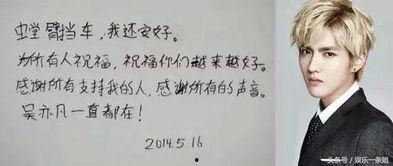 螳臂挡车，我还安好。
为所有人祝福，祝福你们越来越好。
感谢所有支持我的人，感谢所有的声音。
吴亦凡一直都在！
2014.5.16
头条号/娱乐一条姐